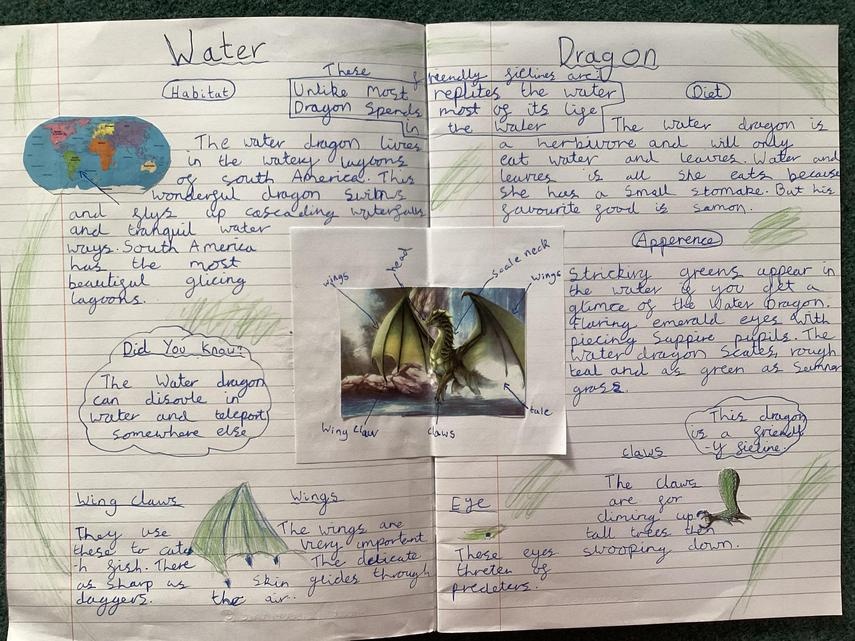 Water Dragon
These friendly fictines are!
Unlike Most reptiles the water
Dragon Spends most of its life
in the water
Habitat
The water dragon lives
in the watery lagoons
of south America. This
wonderful dragon swims
and flys up cascading waterfalls
and tranquil water
ways. South America
has the most
beautiful glicing
lagoons.
Did You Know?
The Water dragon
can disovle in
water and teleport
somewhere else
Wing claws
They use
these to catc
-h fish. There
as sharp as
daggers.
Wings
The wings are
very important
The delicate
skin glides through
the air.
wings
head
scale neck
wings
Wing claw
claws
tale
Diet
The water dragon is
a herbivore and will only
eat water and leaves. Water and
leaves is all she eats because
she has a small stomake. But his
favourite food is samon.
Apperence
Stricking greens appear in
the water if you get a
glimce of the Water Dragon.
Flaring emerald eyes with
piecing Sappire pupils. The
water dragon Scales, rough
teal and as green as Summer
grass.
This dragon
is a friendl
-y fictine.
Eye
These eyes
threten of
predeters.
claws
The claws
are for
climing up
tall trees then
swooping down.